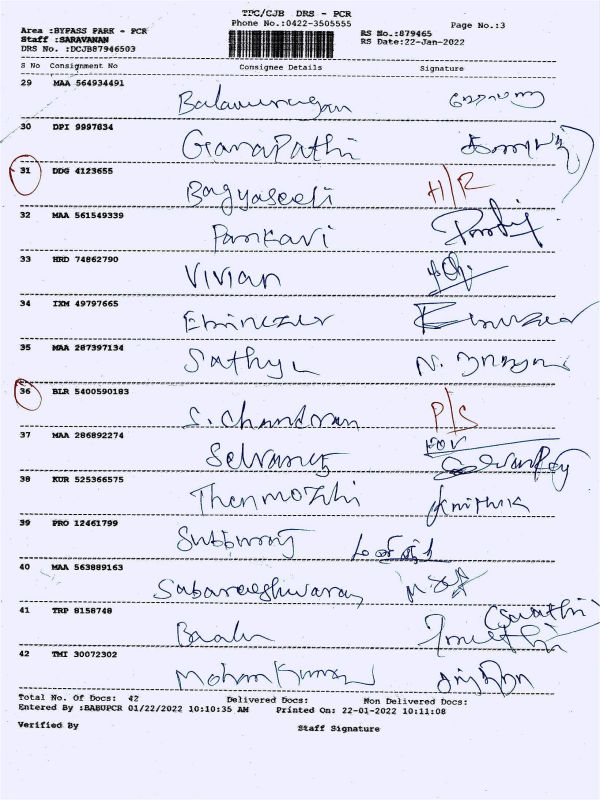 TPC/CJB DRS - PCR
Phone No.:0422-3505555
Page No.:3
Area :BYPASS PARK - PCR
Staff :SARAVANAN
DRS No. :DCJB87946503
RS No.:879465
RS Date:22-Jan-2022
S No Consignment No Consignee Details Signature
29 MAA 564934491
Balamurugan
30 DPI 9997834
GanaPathi
31 DDG 4123655
Bagyaseeli H/R
32 MAA 561549339
Pankavi
33 HRD 74862790
Vivian
34 IXM 49797665
Ebinezer Ebinezer
35 MAA 287397134
Sathya
36 BLR 5400590183
S. Chandran P/S
37 MAA 286892274
Selvaraj
38 KUR 525366575
Thenmozhi
39 PRO 12461799
40 MAA 563889163
Sabareeshwaran
41 TRP 8158748
42 TMI 30072302
MohanKumar
Total No. Of Docs: 42 Delivered Docs: Non Delivered Docs:
Entered By :BABUPCR 01/22/2022 10:10:35 AM Printed On: 22-01-2022 10:11:08
Verified By Staff Signature